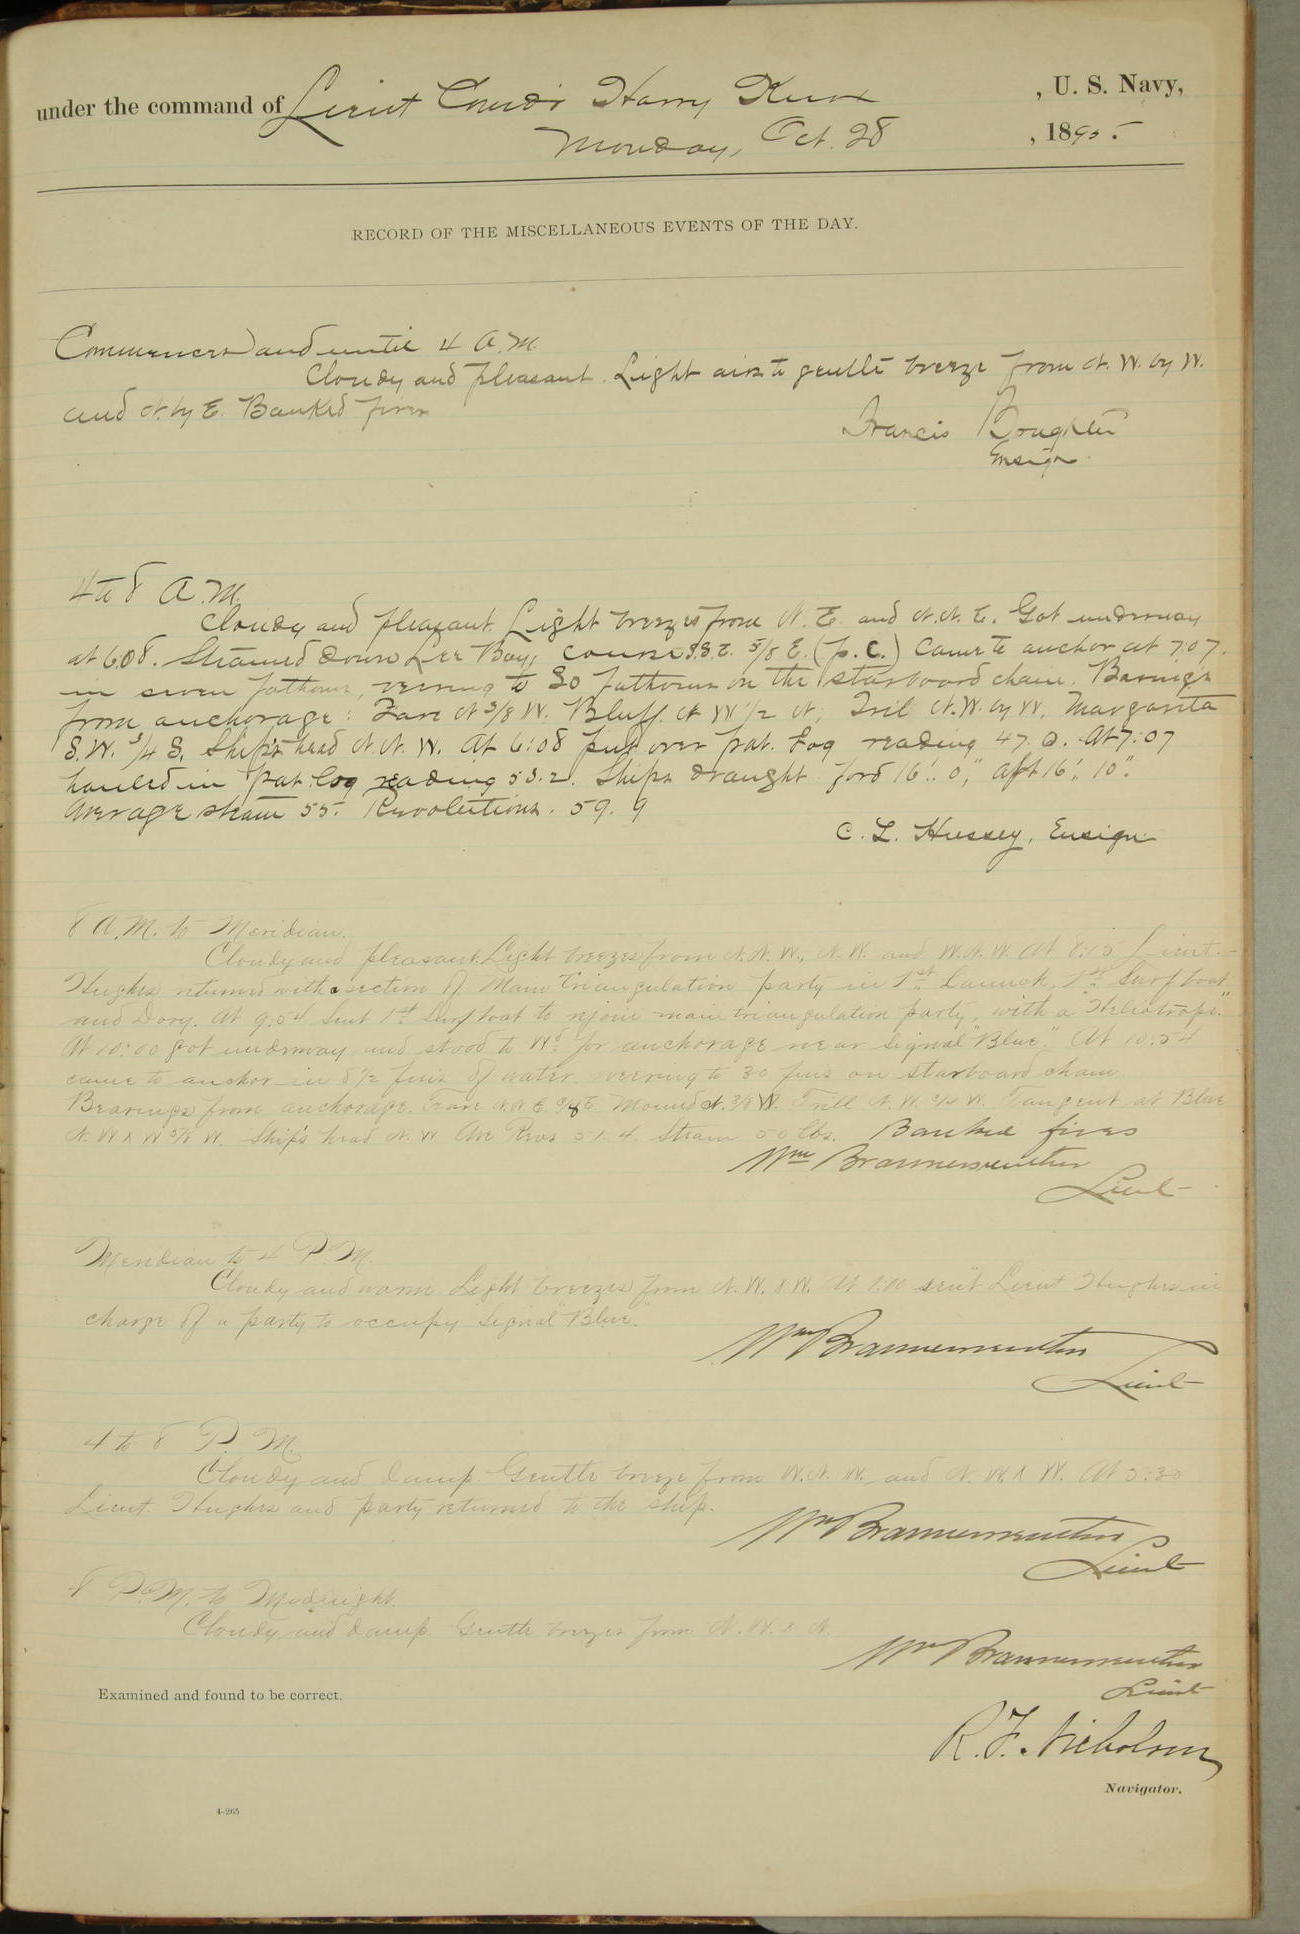 under the command of Lieut Comd'r Harry Knox , U. S. Navy,
Monday, Oct. 28 , 1895.
RECORD OF THE MISCELLANEOUS EVENTS OF THE DAY.
Commences and until 4 A.M.
Cloudy and pleasant. Light airs to gentle breeze from N.W. by W.
and N. by E. Banked fires
Francis Boughter
Ensign.
4 to 8 A.M.
Cloudy and pleasant. Light breezes from N.E. and N.N.E. Got underway
at 6:08. Steamed down Lee Bay, course S.S.E. 5/8 E. (p.c.) Came to anchor at 7:07.
in seven fathoms, veering to 30 fathoms on the starboard chain. Bearings
from anchorage: Fare N 3/8 W. Bluff N W 1/2 N, Tril N.W. by W. Margarita
S.W. 3/4 S. Ship's head N.N.W. At 6:08 put over pat. log reading 47.0. At 7:07
hauled in pat. log reading 53.2. Ships draught ford 16'. 0", aft 16'. 10".
Average steam 55. Revolutions. 59.9
C. L. Hussey, Ensign
8 A.M. to Meridian.
Cloudy and pleasant. Light breezes from N.N.W., N.W. and W.N.W. At 8:15 Lieut.
Hughes returned with section of Main Triangulation party in 1st Launch, 1st Surf boat
and Dory. At 9:54 sent 1st Surf boat to rejoin main triangulation party, with a "Heliotrope."
At 10:00 got underway and stood to Wd. for anchorage near signal "Blue". At 10:54
came to anchor in 8 1/2 fms of water veering to 30 fms on starboard chain.
Bearings from anchorage. Fare N.N.E. E. Mound N. 3/8 W. Trill N.W. 3/4 W. Tangent at Blue
N.W x W 3/8 W. Ship's head N.W. Ave Revs 51.4. Steam 50 lbs. Banked fires
Wm Braunersreuther
Lieut
Meridian to 4 P.M.
Cloudy and warm. Light breezes from N.W. x W. At 1:00 sent Lieut Hughes in
charge of a party to occupy signal "Blue."
Wm Braunersreuther
Lieut
4 to 8 P.M.
Cloudy and damp. Gentle breeze from W.N.W. and N.W. x W. At 5:30
Lieut. Hughes and party returned to the ship.
Wm Braunersreuther
Lieut
8 P.M. to Midnight.
Cloudy and damp. Gentle breezes from N.W. x N.
Wm Braunersreuther
Lieut
Examined and found to be correct.
R. F. Nicholson
Navigator.
4-265